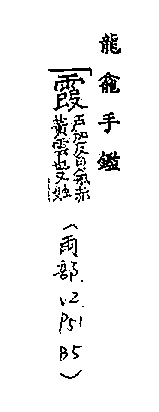 龍龕手鑑
霞
戸加反日氣赤
黃雲也又姓
(雨部. V2. P51 B5)